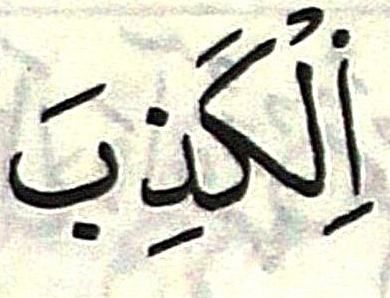 اِلْكَذِبَ